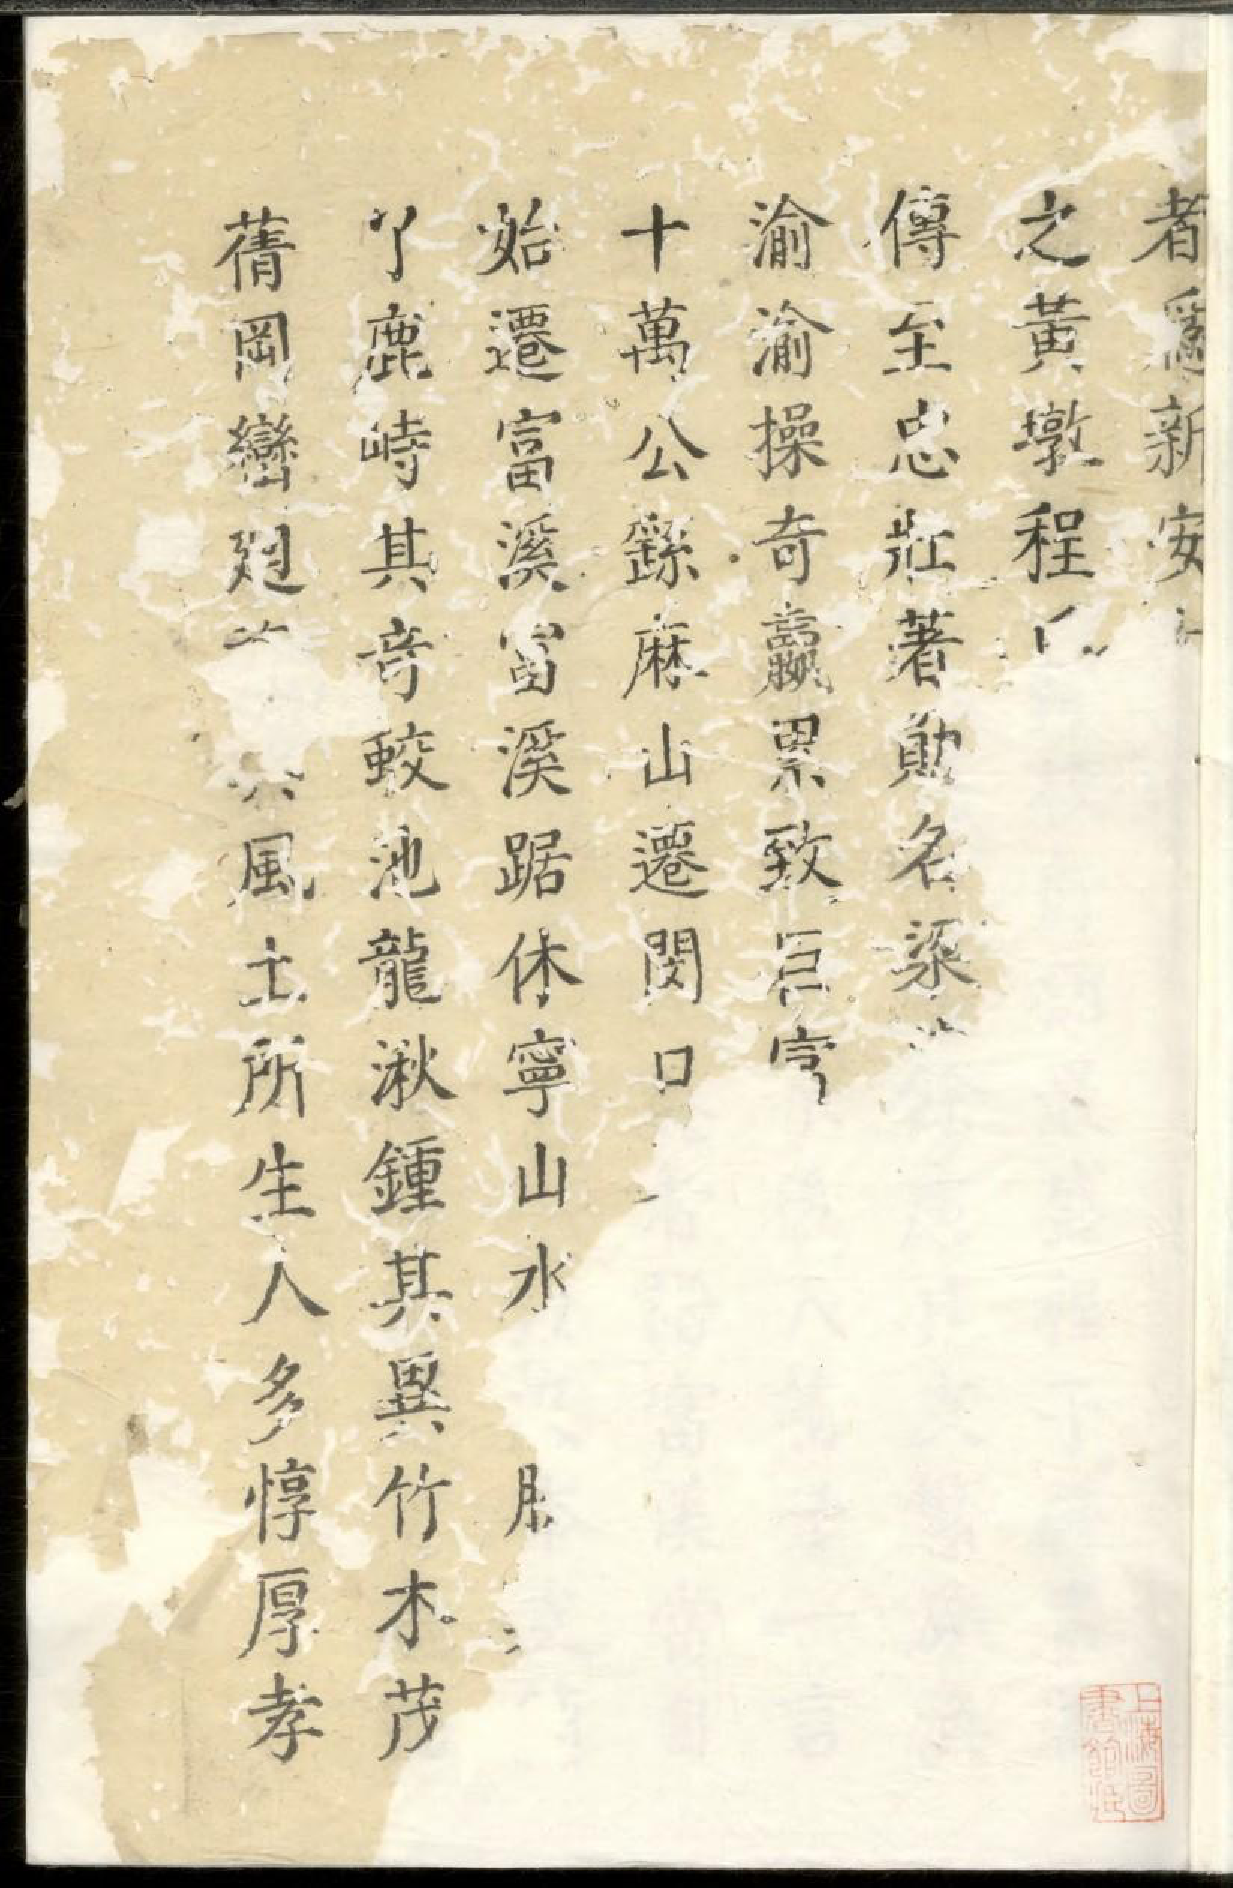 者爲新安
之黃墩程
傳至忠壯著勛名梁
渝渝操奇贏累致巨
十萬公繇麻山遷閔口
始遷富溪富溪踞休寧山水
鹿峙其竒蛟池龍湫鍾其異竹木茂
蒨岡巒廻風土所生人多惇厚孝
上海圖書館藏